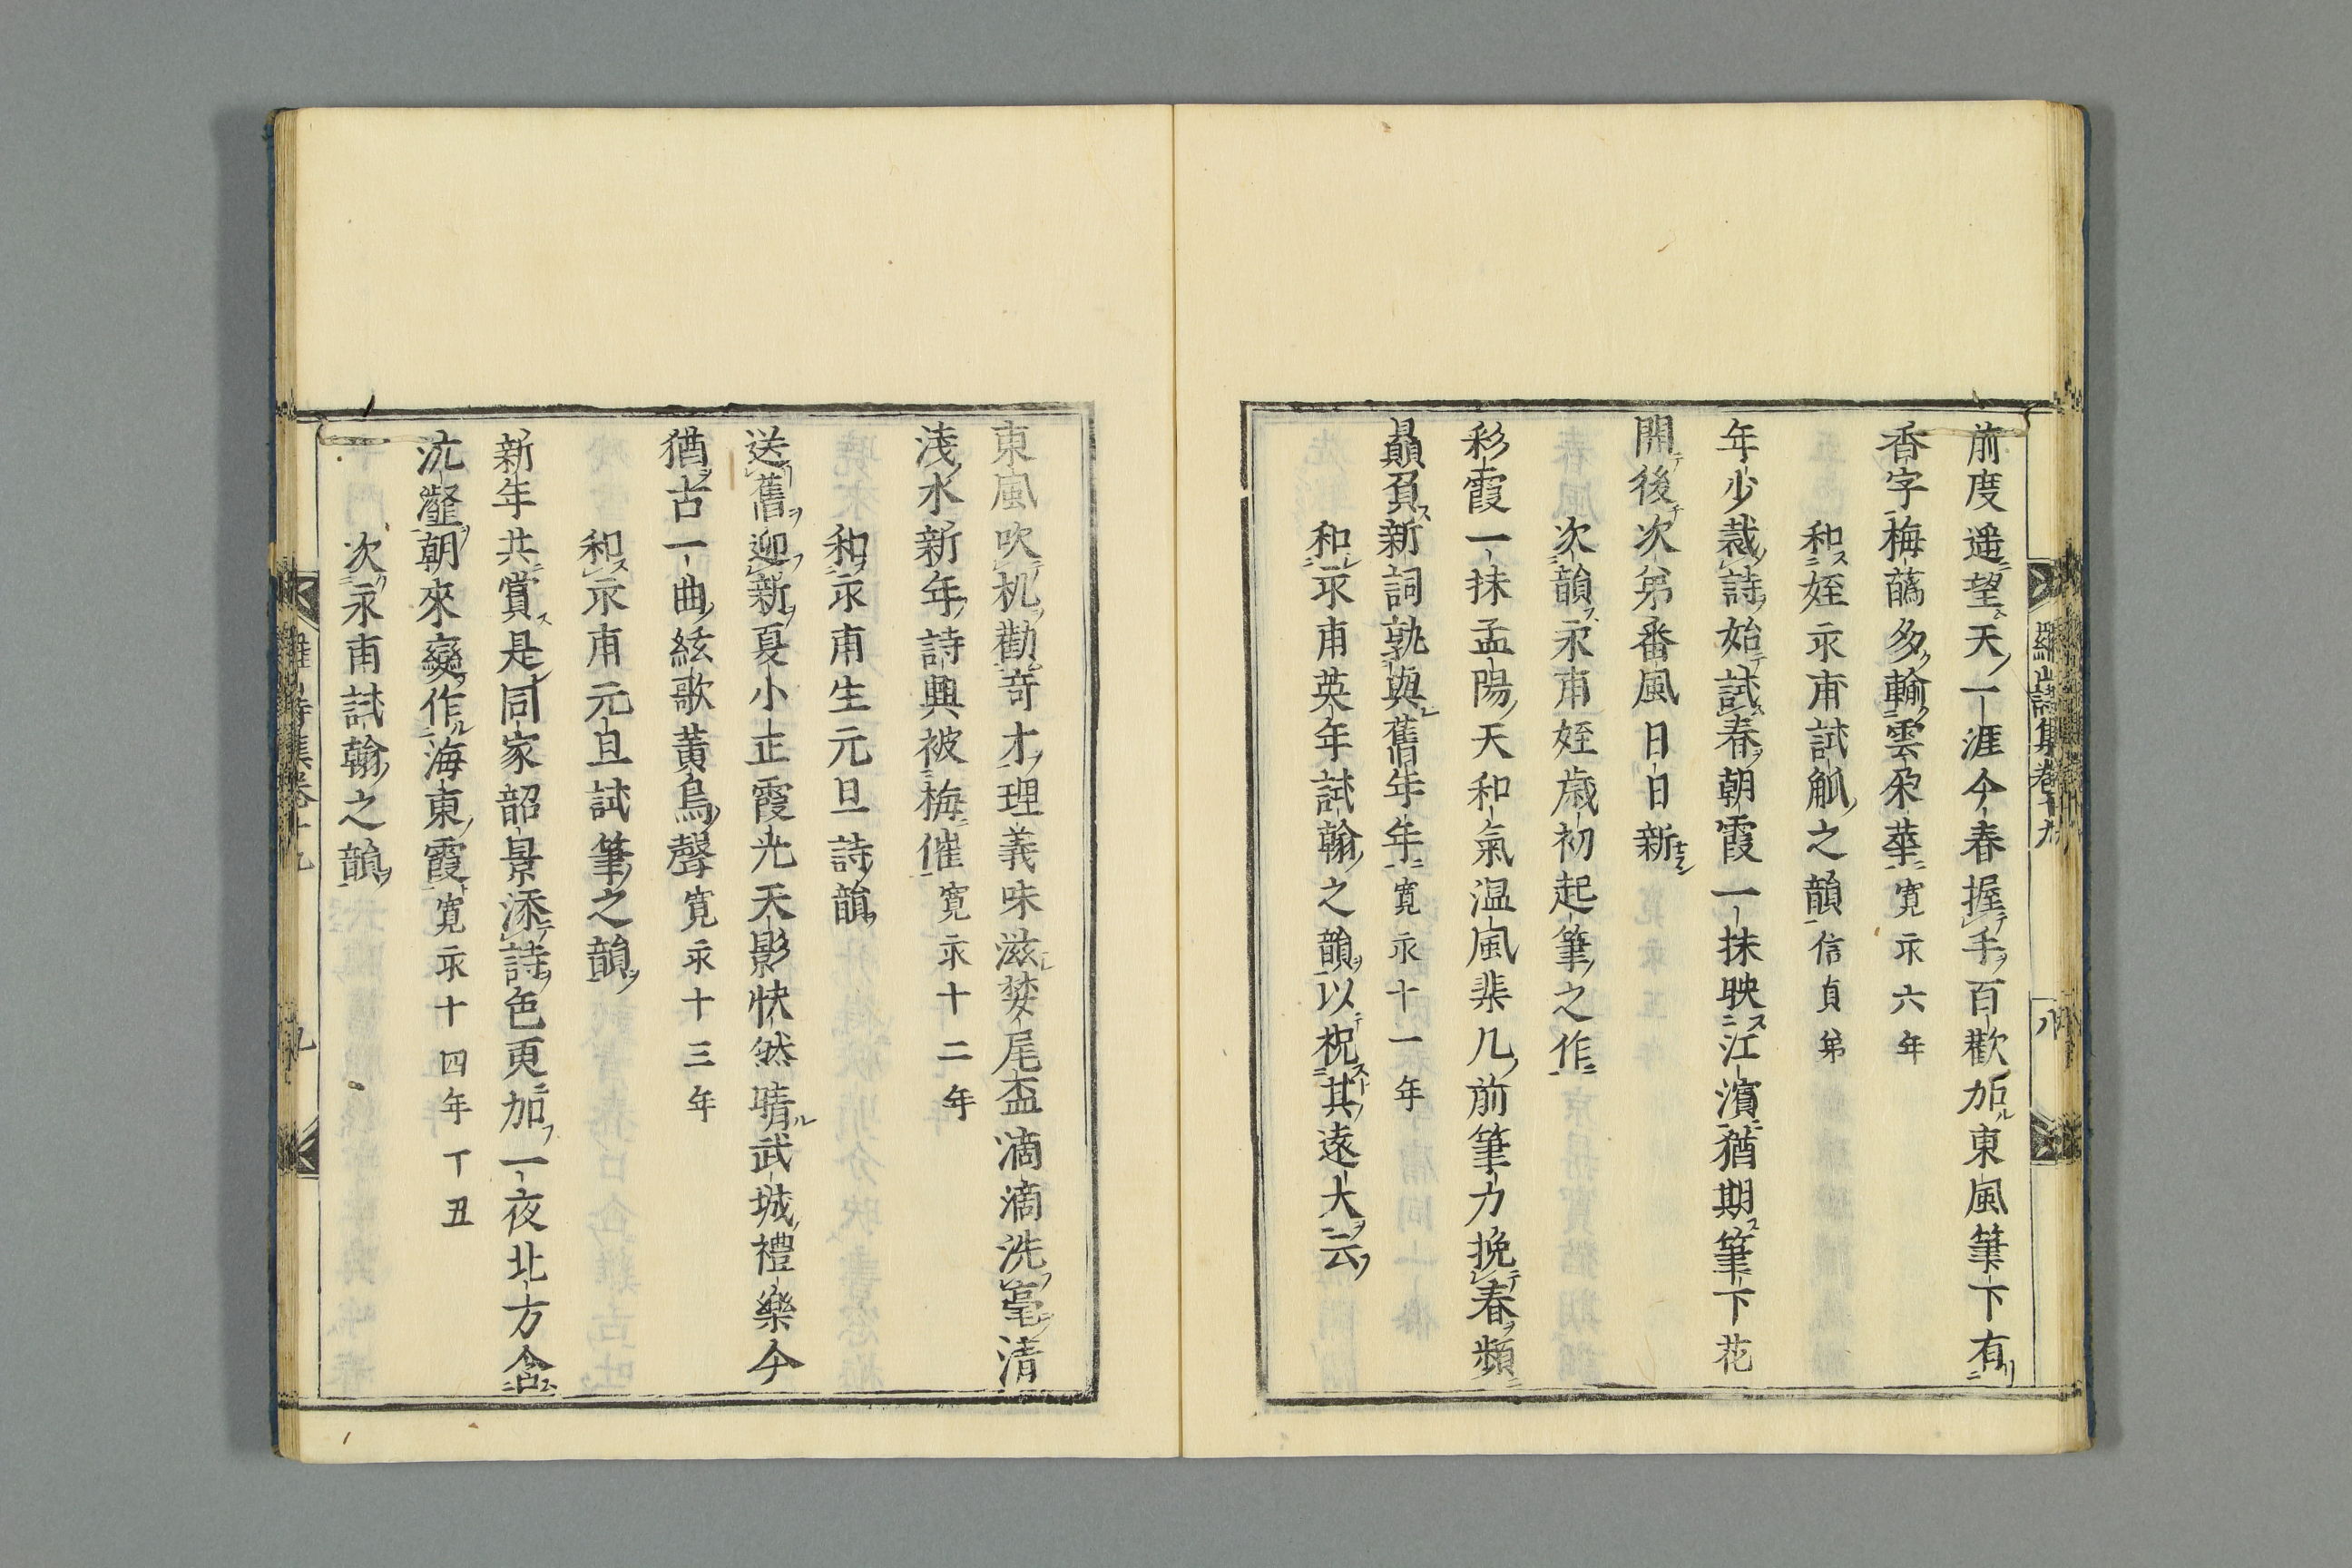 羅山詩集卷十九
八
前度遥望天一涯今春握手百歡加東風筆下有
香字梅蘂多輸雲朶華寛永六年
和姪永甫試觚之韻信貞弟
年少裁詩始試春朝霞一抹映江濱猶期筆下花
開後次弟番風日日新
次韻永甫姪歳初起筆之作
彩霞一抹孟陽天和氣温風棐几前筆力挽春頻
贔屓新詞孰與舊年年寛永十一年
和永甫英年試翰之韻以祝其遠大云
東風吹机勸竒才理義味滋婪尾盃滴滴洗毫清
淺水新年詩興被梅催寛永十二年
和永甫生元旦詩韻
送舊迎新夏小正霞光天影快然晴武城禮樂今
猶古一曲絃歌黄鳥聲寛永十三年
和永甫元旦試筆之韻
新年共賞是同家韶景添詩色更加一夜北方含
沆瀣朝來變作海東霞寛永十四年丁丑
次永甫試翰之韻